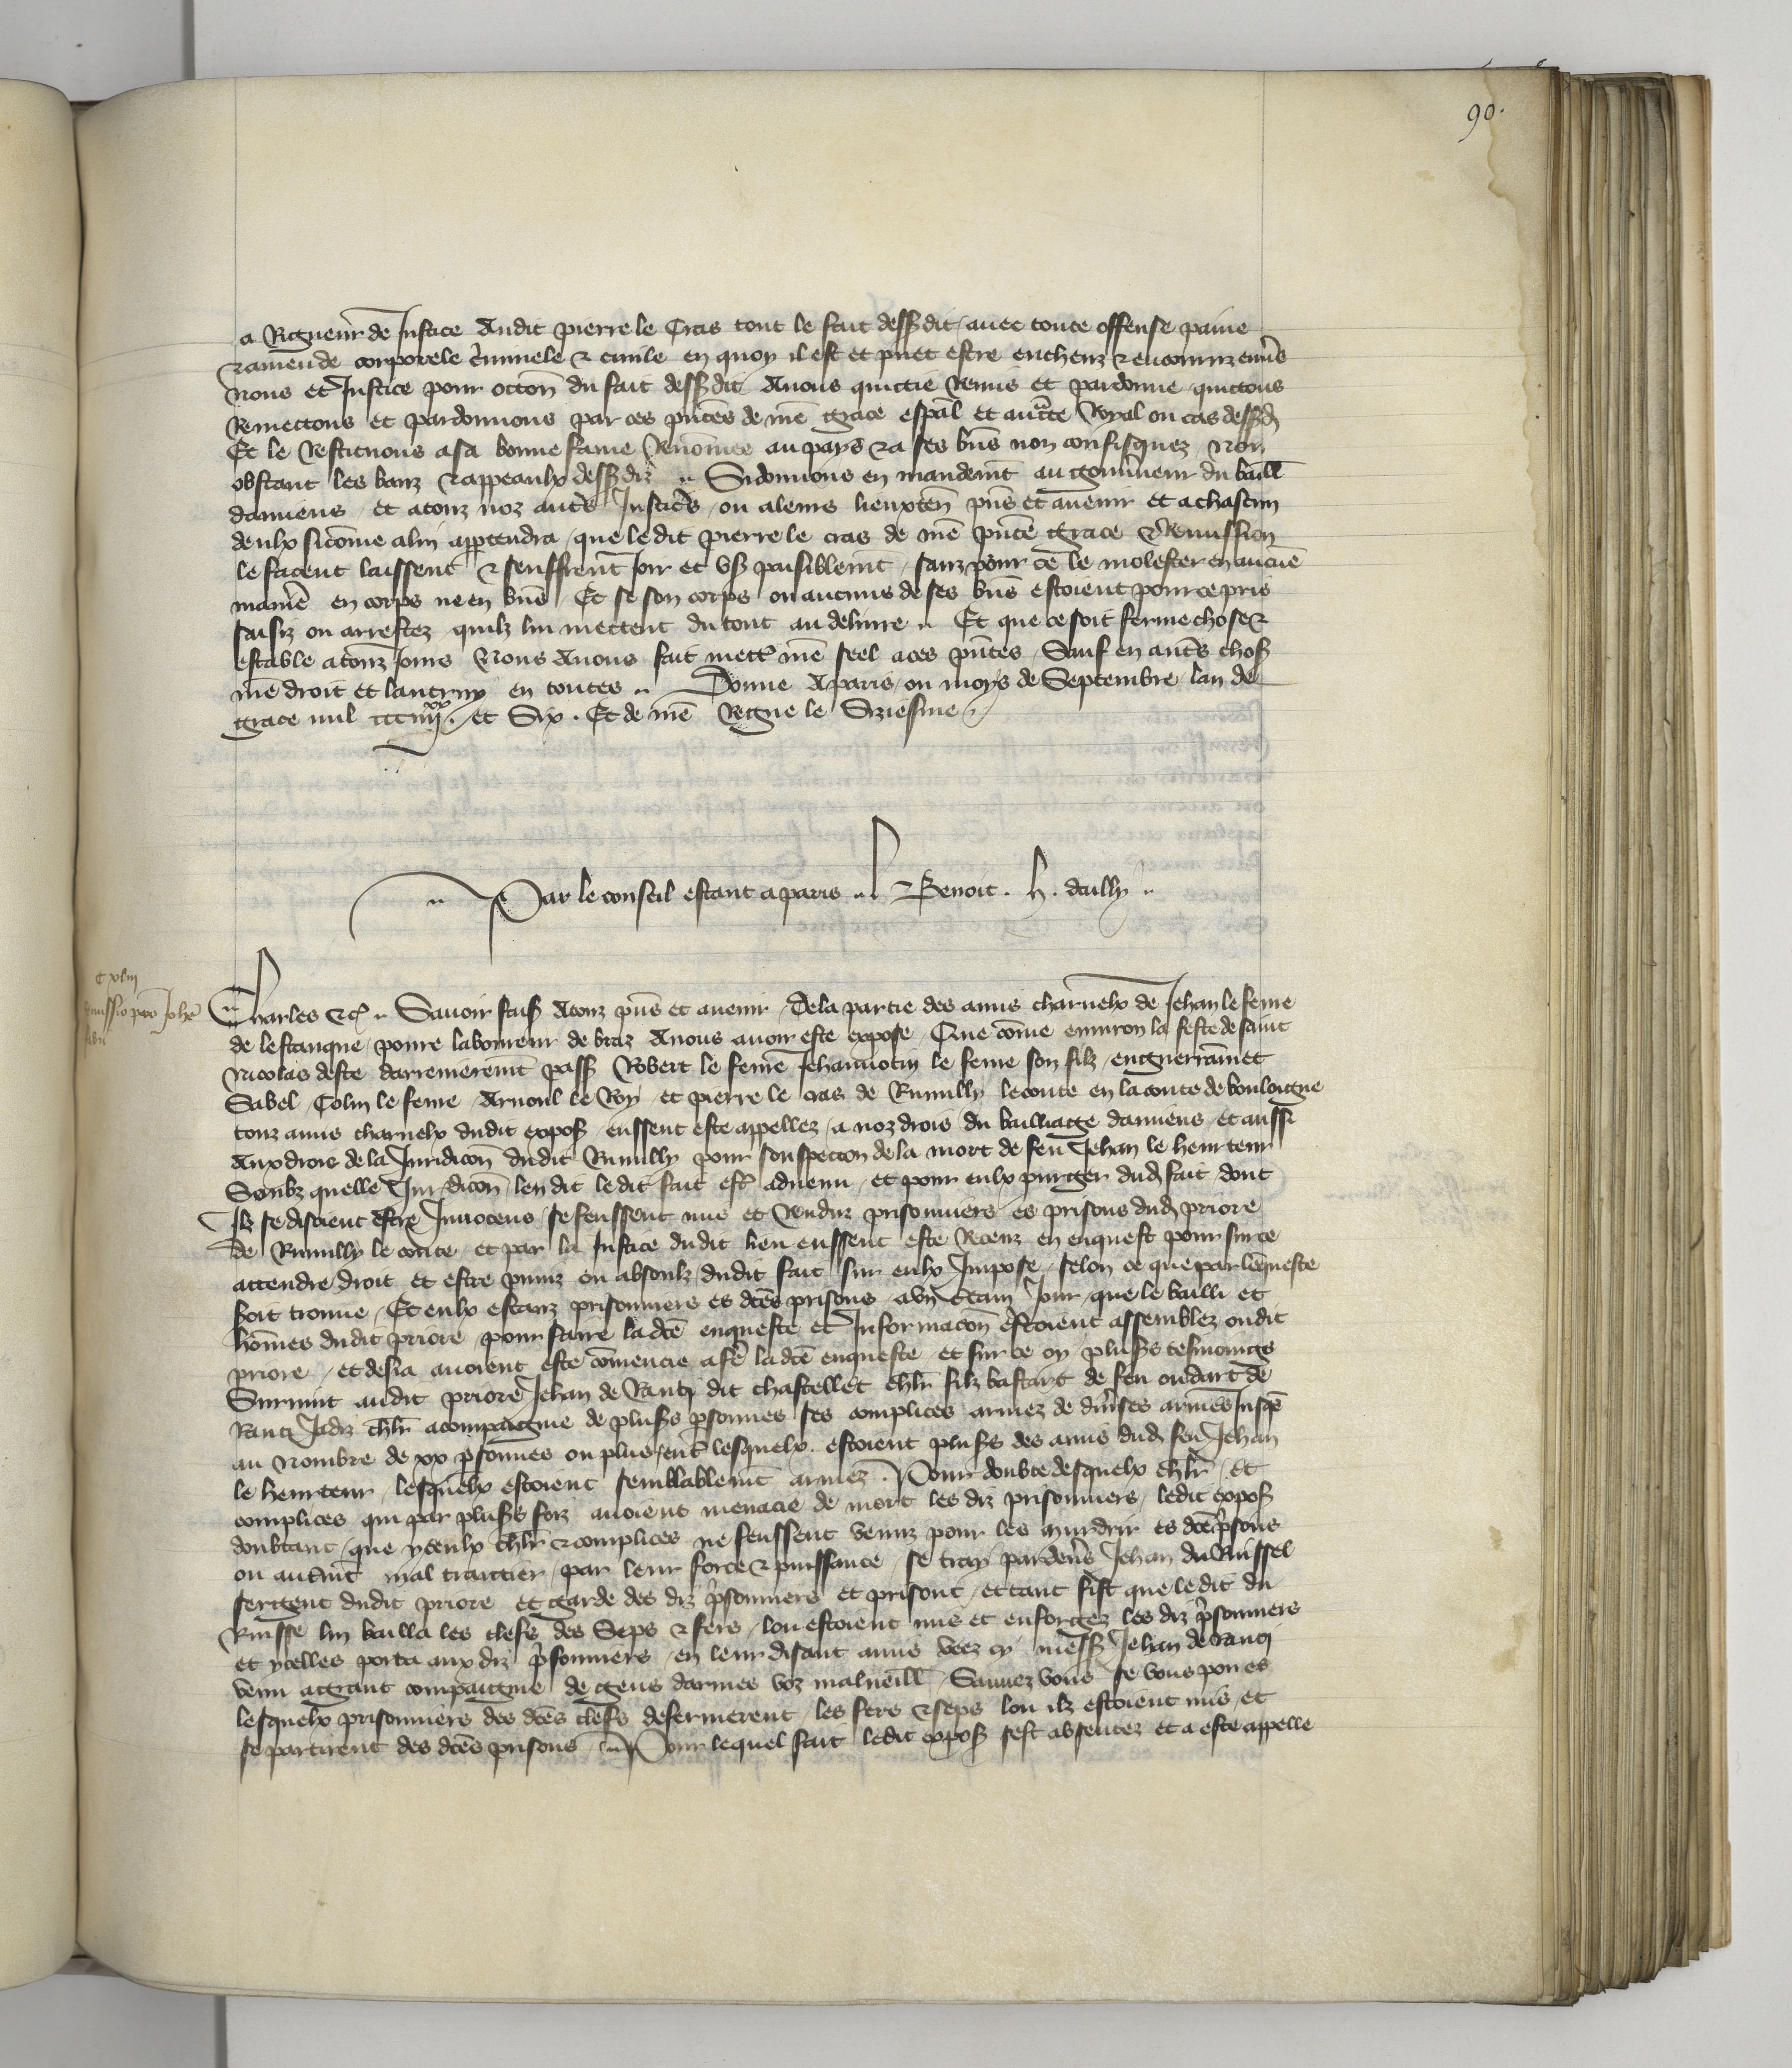 90.
a Rigueur de Justice Audit pierre le Cras tout le fait dessdit / auec toute offense paine
& amende corporele c͛iminele & ciuile en quoy il est et puet estre encheuz & encouruz enu͛s
Nous et Justice pour occōn du fait dessdit Auons quictie Remis et pardonne quictons
Remectons et pardonnons par ces pn̄tes de nr̄e grace esp̄al et auct̄te Royal ou cas dessd
Et le Restituons a sa bonne fame Renōmee au pays & a ses bn̄s non confisquez Non
obstant les banz & appeaulx dessdiz .. Si donnons en mandemt au gouu͛neur du baill
damiens et a touz noz aut͛s Justic͛s ou a leurs lieuxten̄ pn̄s et auenir et a chascun
deulx si cōme a lui app̱tendra que ledit pierre le cras de nr̄e pn̄te grace & Remission
le facent laissent & seuffrent joir et vs̄ paisiblemt sanz pour ce le molester en aucūe
manie͛ en corps ne en bn̄s Et se son corps ou aucuns de ses bn̄s estoient pour ce pris
saisiz ou arrestez quilz lui mettent du tout au deliure .. Et que ce soit ferme chose &
estable a touz jours Nous Auons fait mett͛ nr̄e seel a ces pn̄tes Sauf en aut͛s chos
nr̄e droit et lautruy en toutes .. Donne A paris ou moys de Septembre lan de
grace mil ccciiijxx. et Six . Et de nr̄e Regne le Siziesme
.. Par le conseil estant a paris .. Benoit . H . dailly ..
C xliij
Remissio pro Joh̄e
Charles &c̄ .. Sauoir fais A touz pn̄s et auenir De la partie des amis charnelx de Jehan le feure
de lestanque poure laboureur de braz Auons auoir este expose Que cōme enuiron la feste de saint
Nicolas deste darrenieremt pass Robert le feure Jehannotin le feure son filz enguerrānet
Sabel Colin le feure Arnoul le Roy et pierre le cras de Rumilly le conte en la conte de bouloigne
touz amis charnelx dudit expos eussent este appellez a noz drois du bailliage damiens et aussi
Aux drois de la Juridicōn dudit Rumilly pour souspeccon de la mort de feu Jehan le heurteur
Soubz quelle Juridicōn len dit ledit fait est͛ aduenu et pour eulx purger dud fait dont
Ilz se disoient estre Innocens se feussent mis et Renduz prisonniers es prisons dud priore
de Rumilly le conte et par la Justice dudit lieu eussent este Receuz en enquest pour sur ce
attendre droit et estre puniz ou absoulz dudit fait sur eulx Impose selon ce que par lenqueste
soit trouue Et eulx estanz prisonniers es dc̄es prisons a vn̄ c͛tain Jour que le bailli et
hōmes dudit priore pour faire la dc̄e enqueste et Informacōn estoient assemblez oudit
priore et desia auoient este cōmencie a fe͛ la dc̄e enqueste et sur ce oy plus͛s tesmoings
Suruint audit priore Jehan de Ranti dit chastellet chlr̄ filz bastart de feu oudart de
Ranti Jadiz chlr̄ acompaigne de plus͛s p̱sonnes ses complices armez de diu͛ses armes Jusq̄s
au Nombre de xx p̱sonnes ou plus ent͛ lesquelx estoient plus͛s des amis dud feu Jehan
le heurteur lesquelx estoient semblablemt armez . Pour doubte desquelx chlr̄ Et
complices qui par plus͛s foiz auoient menacie de mort les diz prisonniers ledit expos
doubtant que yceulx chlr̄ & complices ne feussent venuz pour les murdrir es dc̄es p͛sons
ou aut͛mt mal traictier par leur force & puissance se tray par deu͛s Jehan du Ruissel
sergent dudit priore et garde des diz p͛sonniers et prisont et tant fist que ledit du
Ruisse lui bailla les clefs des Seps & fers lou estoient mis et enforgez les diz p͛sonniers
et ycelles porta aux diz p͛sonniers en leur disant amis veez cy mess Jehan de Ranti
venu a grant compaignie de gens darmes voz malueill Sauuez vous se vous poues
lesquelx prisonniers des dc̄es clefs desfermerent les fers & seps lou ilz estoient mis et
se partirent des dc̄es prisons .. Pour lequel fait ledit expos sest absentez et a este appelle